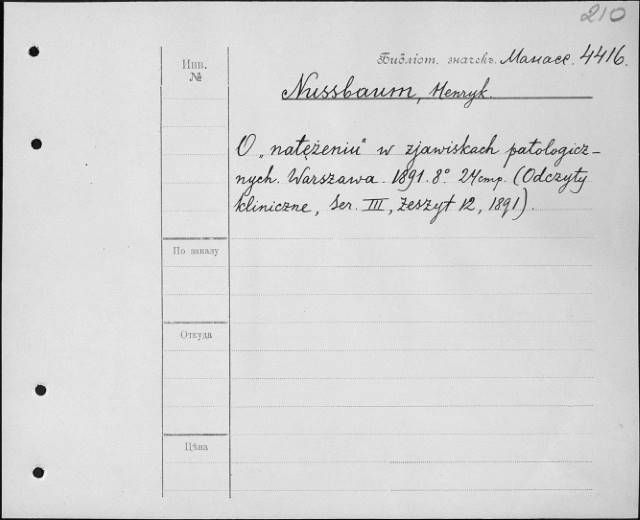 210
Инв.
№
Библіот. значекъ. Манасс. 4416.
Nussbaum, Henryk.
O „natężeniu" w zjawiskach patologicz-
nych. Warszawa. 1891. 8° 24 стр. (Odczyty
kliniczne, Ser. III, Zeszyt 12, 1891).
По заказу
Откуда
Цѣна